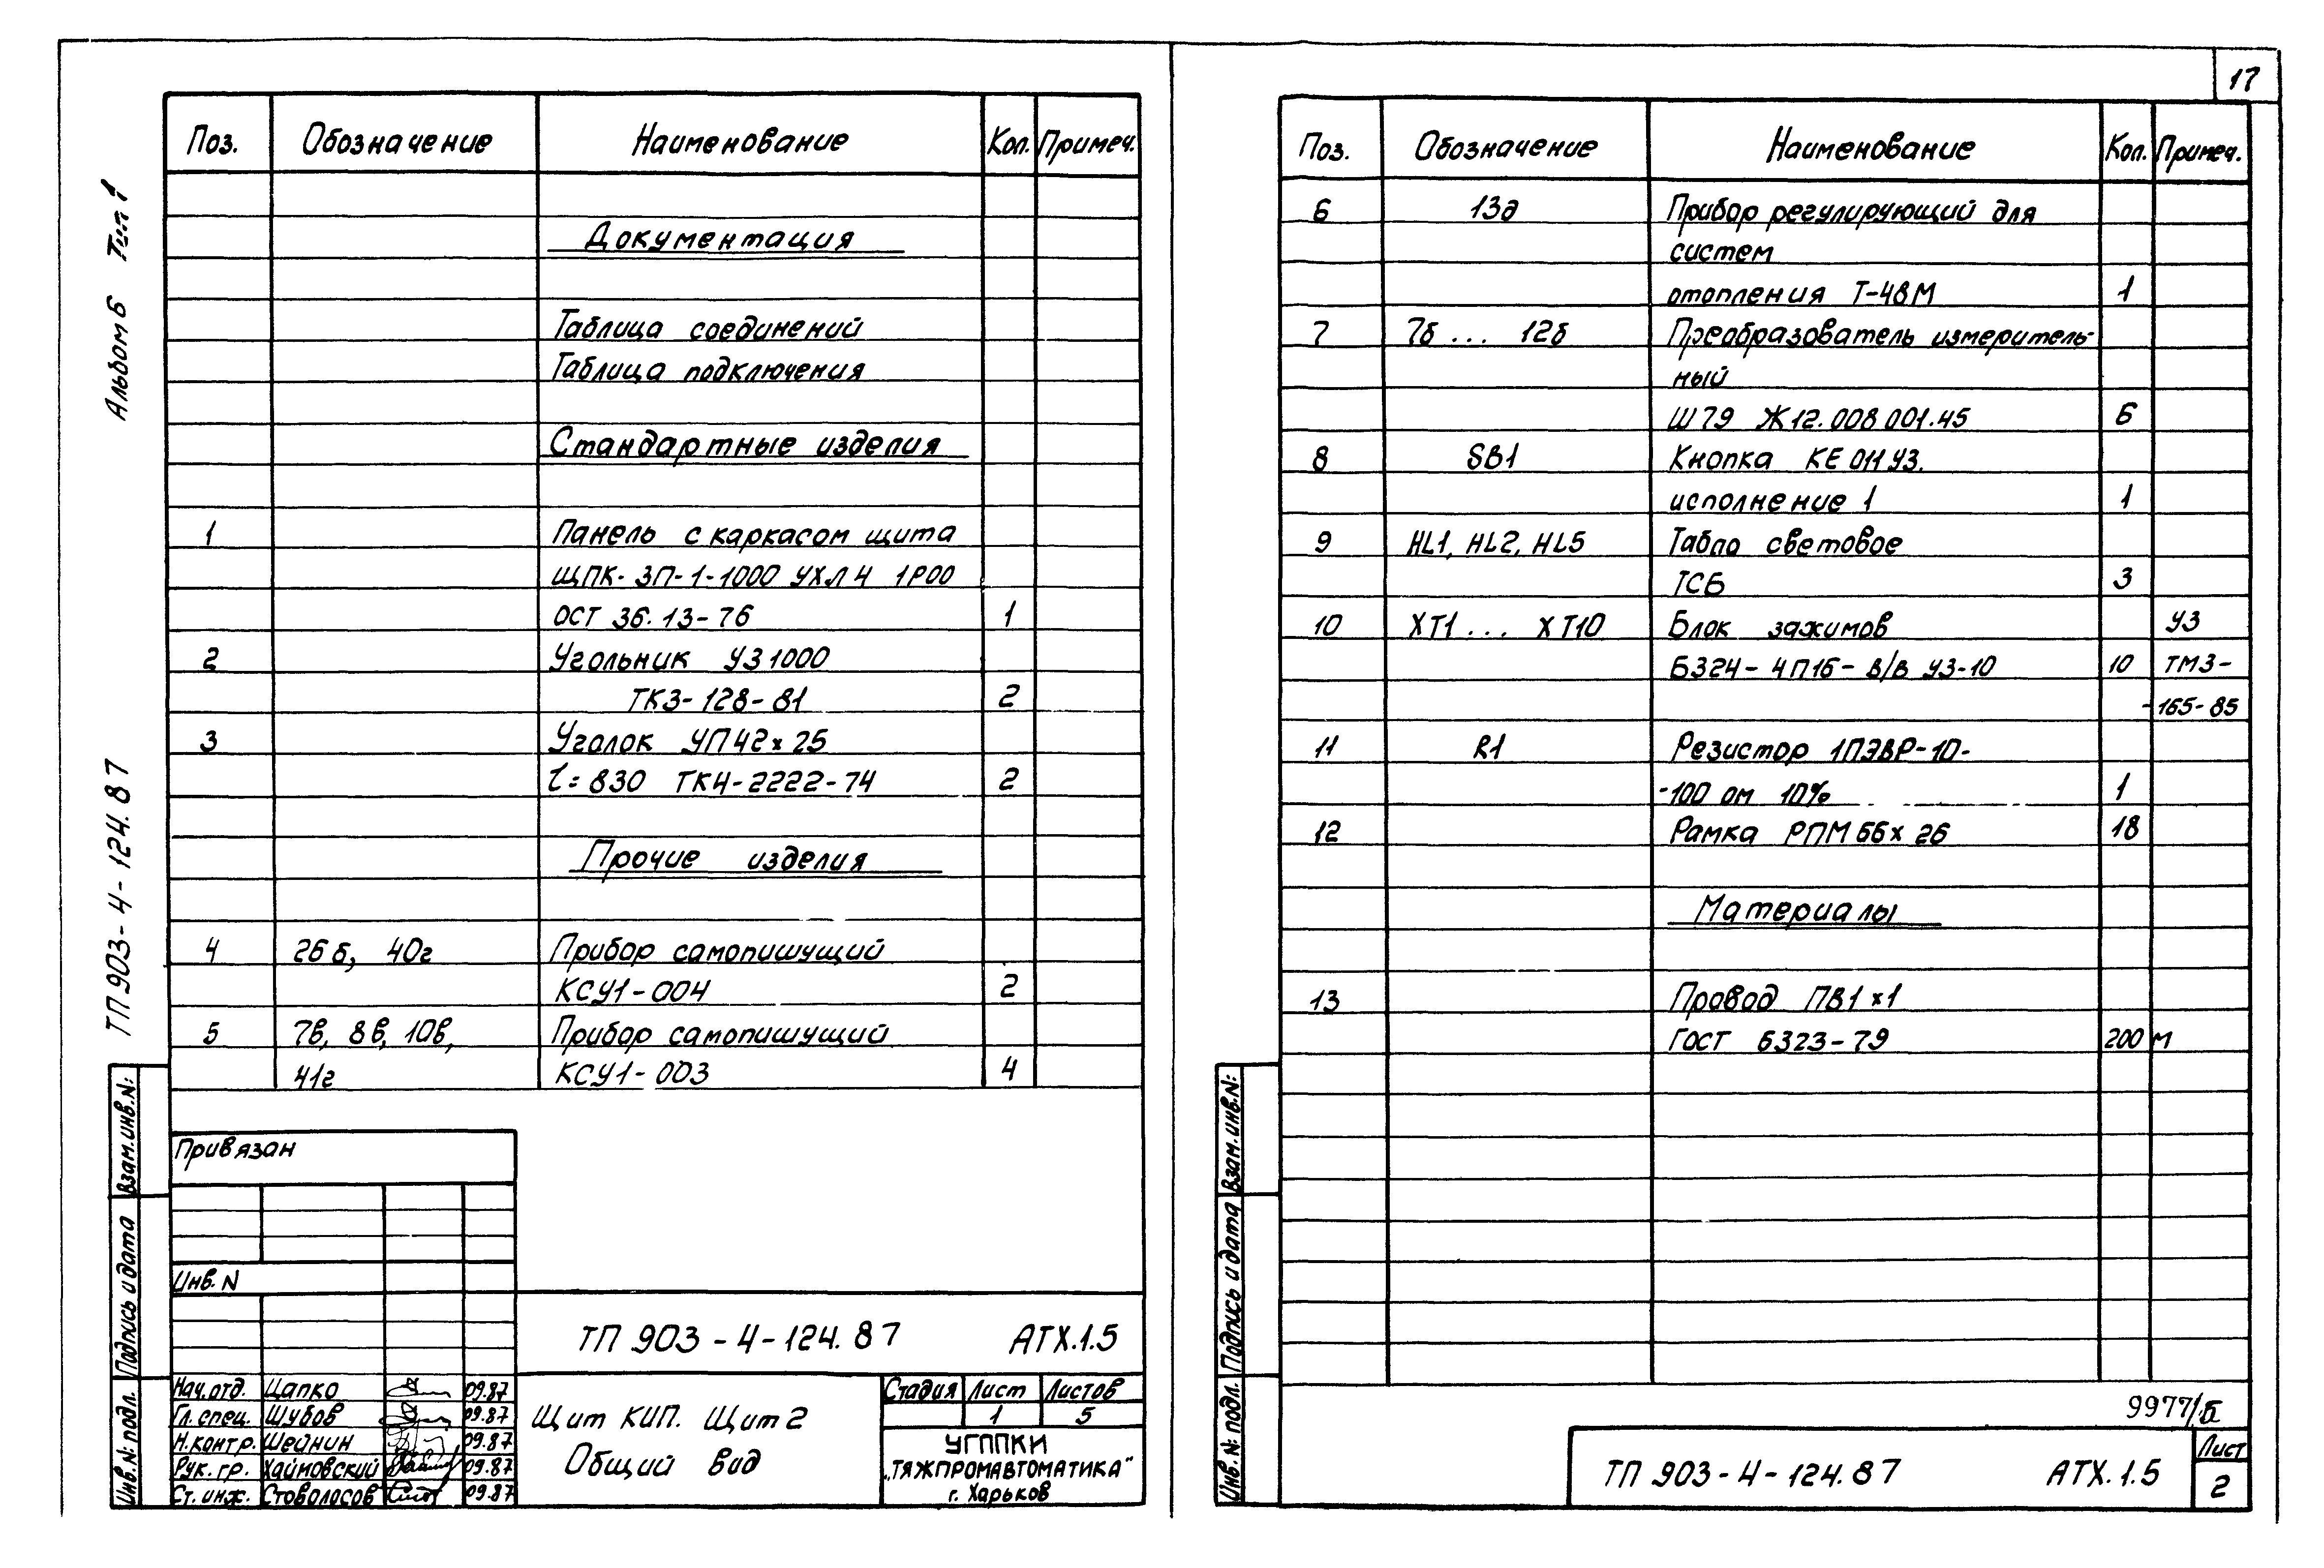 17
Альбом 6 Тип 1
ТП 903-4-124.87
Поз. Обозначение Наименование Кол. Примеч.
Документация
Таблица соединений
Таблица подключения
Стандартные изделия
1 Панель с каркасом щита
ЩПК-ЗП-1-1000 УХЛ4 1Р00
ОСТ 36.13-76 1
2 Угольник УЗ1000
ТК3-128-81 2
3 Уголок УП42х25
l=830 ТК4-2222-74 2
Прочие изделия
4 26б, 40г Прибор самопишущий
КСУ1-004 2
5 7в, 8в, 10в, Прибор самопишущий
41г КСУ1-003 4
Привязан
Инв. N
ТП 903-4-124.87 АТХ.1.5
Нач.отд. Цапко 09.87
Гл.спец. Шубов 09.87
Н.контр. Шейнин 09.87
Рук.гр. Хаймовский 09.87
Ст.инж. Стоволосов 09.87
Щит КИП. Щит 2
Общий вид
Стадия Лист Листов
1 5
УГППКИ
„ТЯЖПРОМАВТОМАТИКА"
г. Харьков
Взам.инв.N:
Подпись и дата
Инв.N: подл.
Поз. Обозначение Наименование Кол. Примеч.
6 13д Прибор регулирующий для
систем
отопления Т-48М 1
7 7б... 12б Преобразователь измеритель-
ный
Ш79 Ж12.008 001.45 6
8 SB1 Кнопка КЕ 011 У3.
исполнение 1 1
9 HL1, HL2, HL5 Табло световое
ТСБ 3
10 XT1... XT10 Блок зажимов У3
Б324-4П16-В/В У3-10 10 ТМ3-
-165-85
11 R1 Резистор 1ПЭВР-10-
-100 ом 10% 1
12 Рамка РПМ 66х26 18
Материалы
13 Провод ПВ1х1
ГОСТ 6323-79 200 м
Взам.инв.N:
Подпись и дата
Инв.N: подл.
9977/6
ТП 903-4-124.87 АТХ.1.5
Лист
2